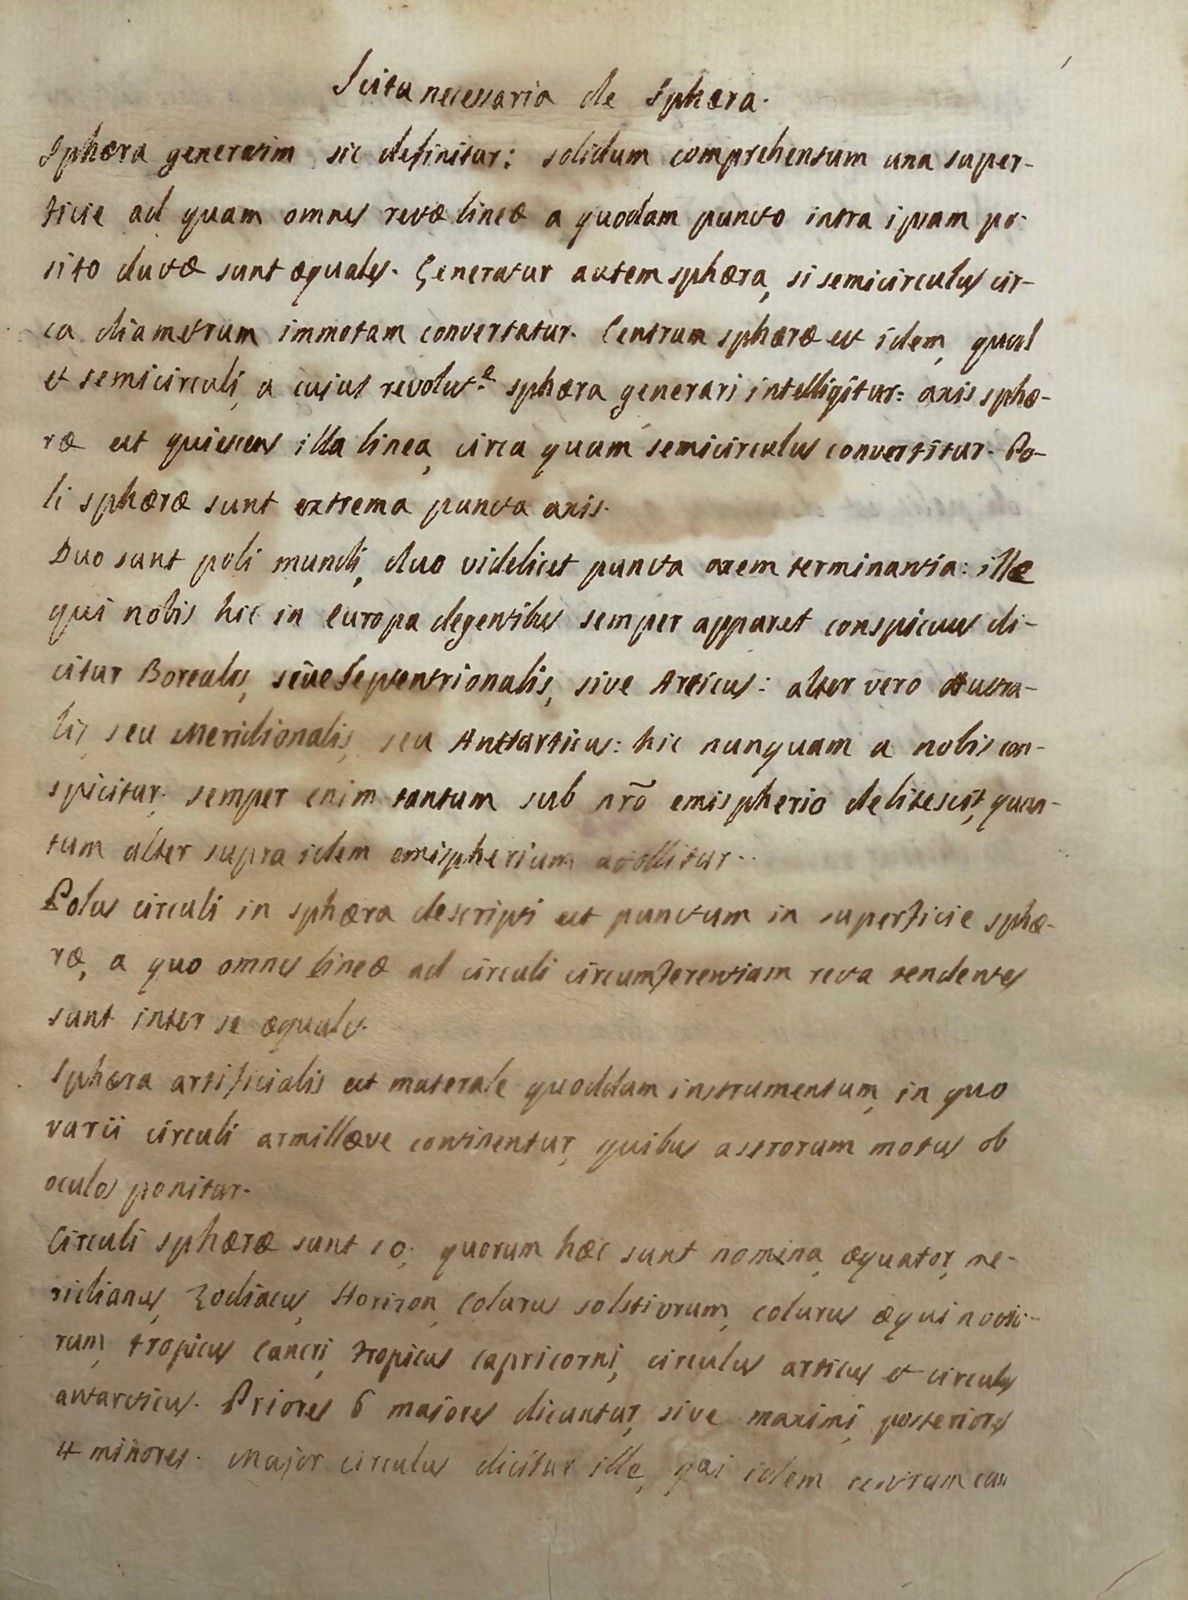 Scitu necessaria de Sphæra.
Sphæra generatim sic definitur: solidum comprehensum una super-
ficie ad quam omnes rectæ lineæ a quodam puncto intra ipsam po-
sito ductæ sunt æquales. Generatur autem sphæra, si semicirculus cir-
ca diametrum immotam convertatur. Centrum sphæræ est idem, quod
et semicirculi, a cujus revolut.e sphæra generari intelligitur: axis sphæ-
ræ est quiescens illa linea, circa quam semicirculus convertitur. Po-
li sphæræ sunt extrema puncta axis.
Duo sunt poli mundi, duo videlicet puncta axem terminantia: ille
qui nobis hic in Europa degentibus semper apparet conspicuus di-
citur Borealis, sive Septentrionalis, sive Articus: alter vero Austra-
lis seu Meridionalis, seu Antarticus: hic nunquam a nobis con-
spicitur, semper enim tantum sub nrō emispherio delitescit, quan-
tum alter supra idem emispherium attollitur.
Polus circuli in sphæra descripti est punctum in superficie sphæ-
ræ, a quo omnes lineæ ad circuli circumferentiam recta tendentes
sunt inter se æquales.
Sphæra artificialis est materale quoddam instrumentum, in quo
varii circuli armillæve continentur, quibus astrorum motus ob
oculos ponitur.
Circuli sphæræ sunt 10; quorum hæc sunt nomina, æquator, me-
ridianus, Zodiacus, Horizon, Colurus solstiorum, colurus æquinoctio-
rum, tropicus Cancri, tropicus capricorni, circulus articus et circulus
antarcticus. Priores 6 majores dicuntur, sive maximi, posteriores
4 minores. Major circulus dicitur ille, qui idem centrum cum